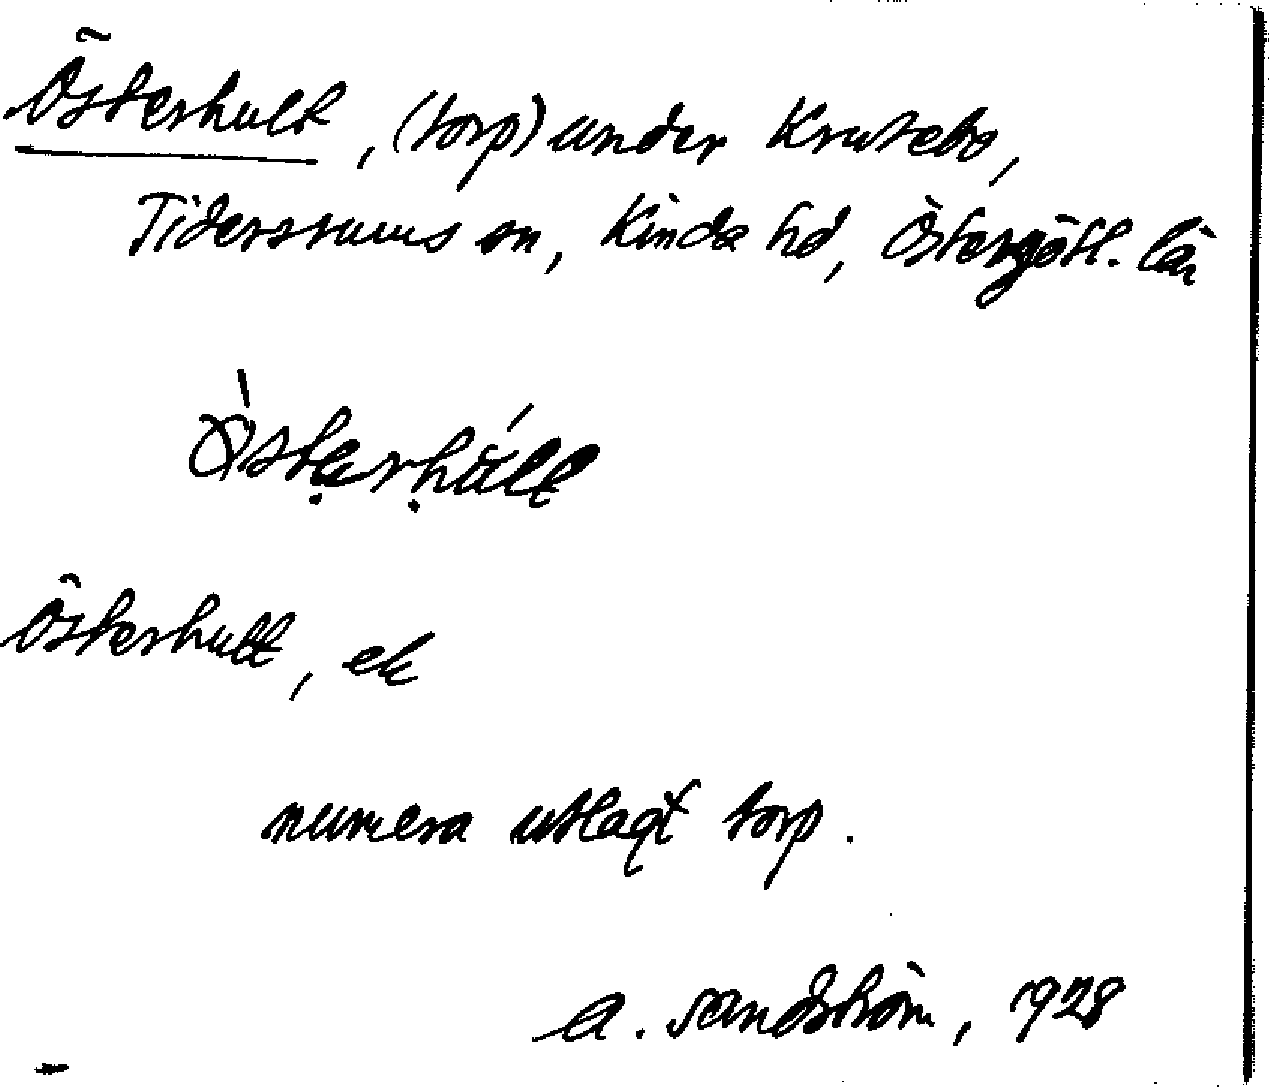 Österhult, (torp) under Krutebo,
Tidersrums sn, Kinda hd, Östergötl. län
Österhult, ek
numera utlagt torp.
A. Sandström, 1928